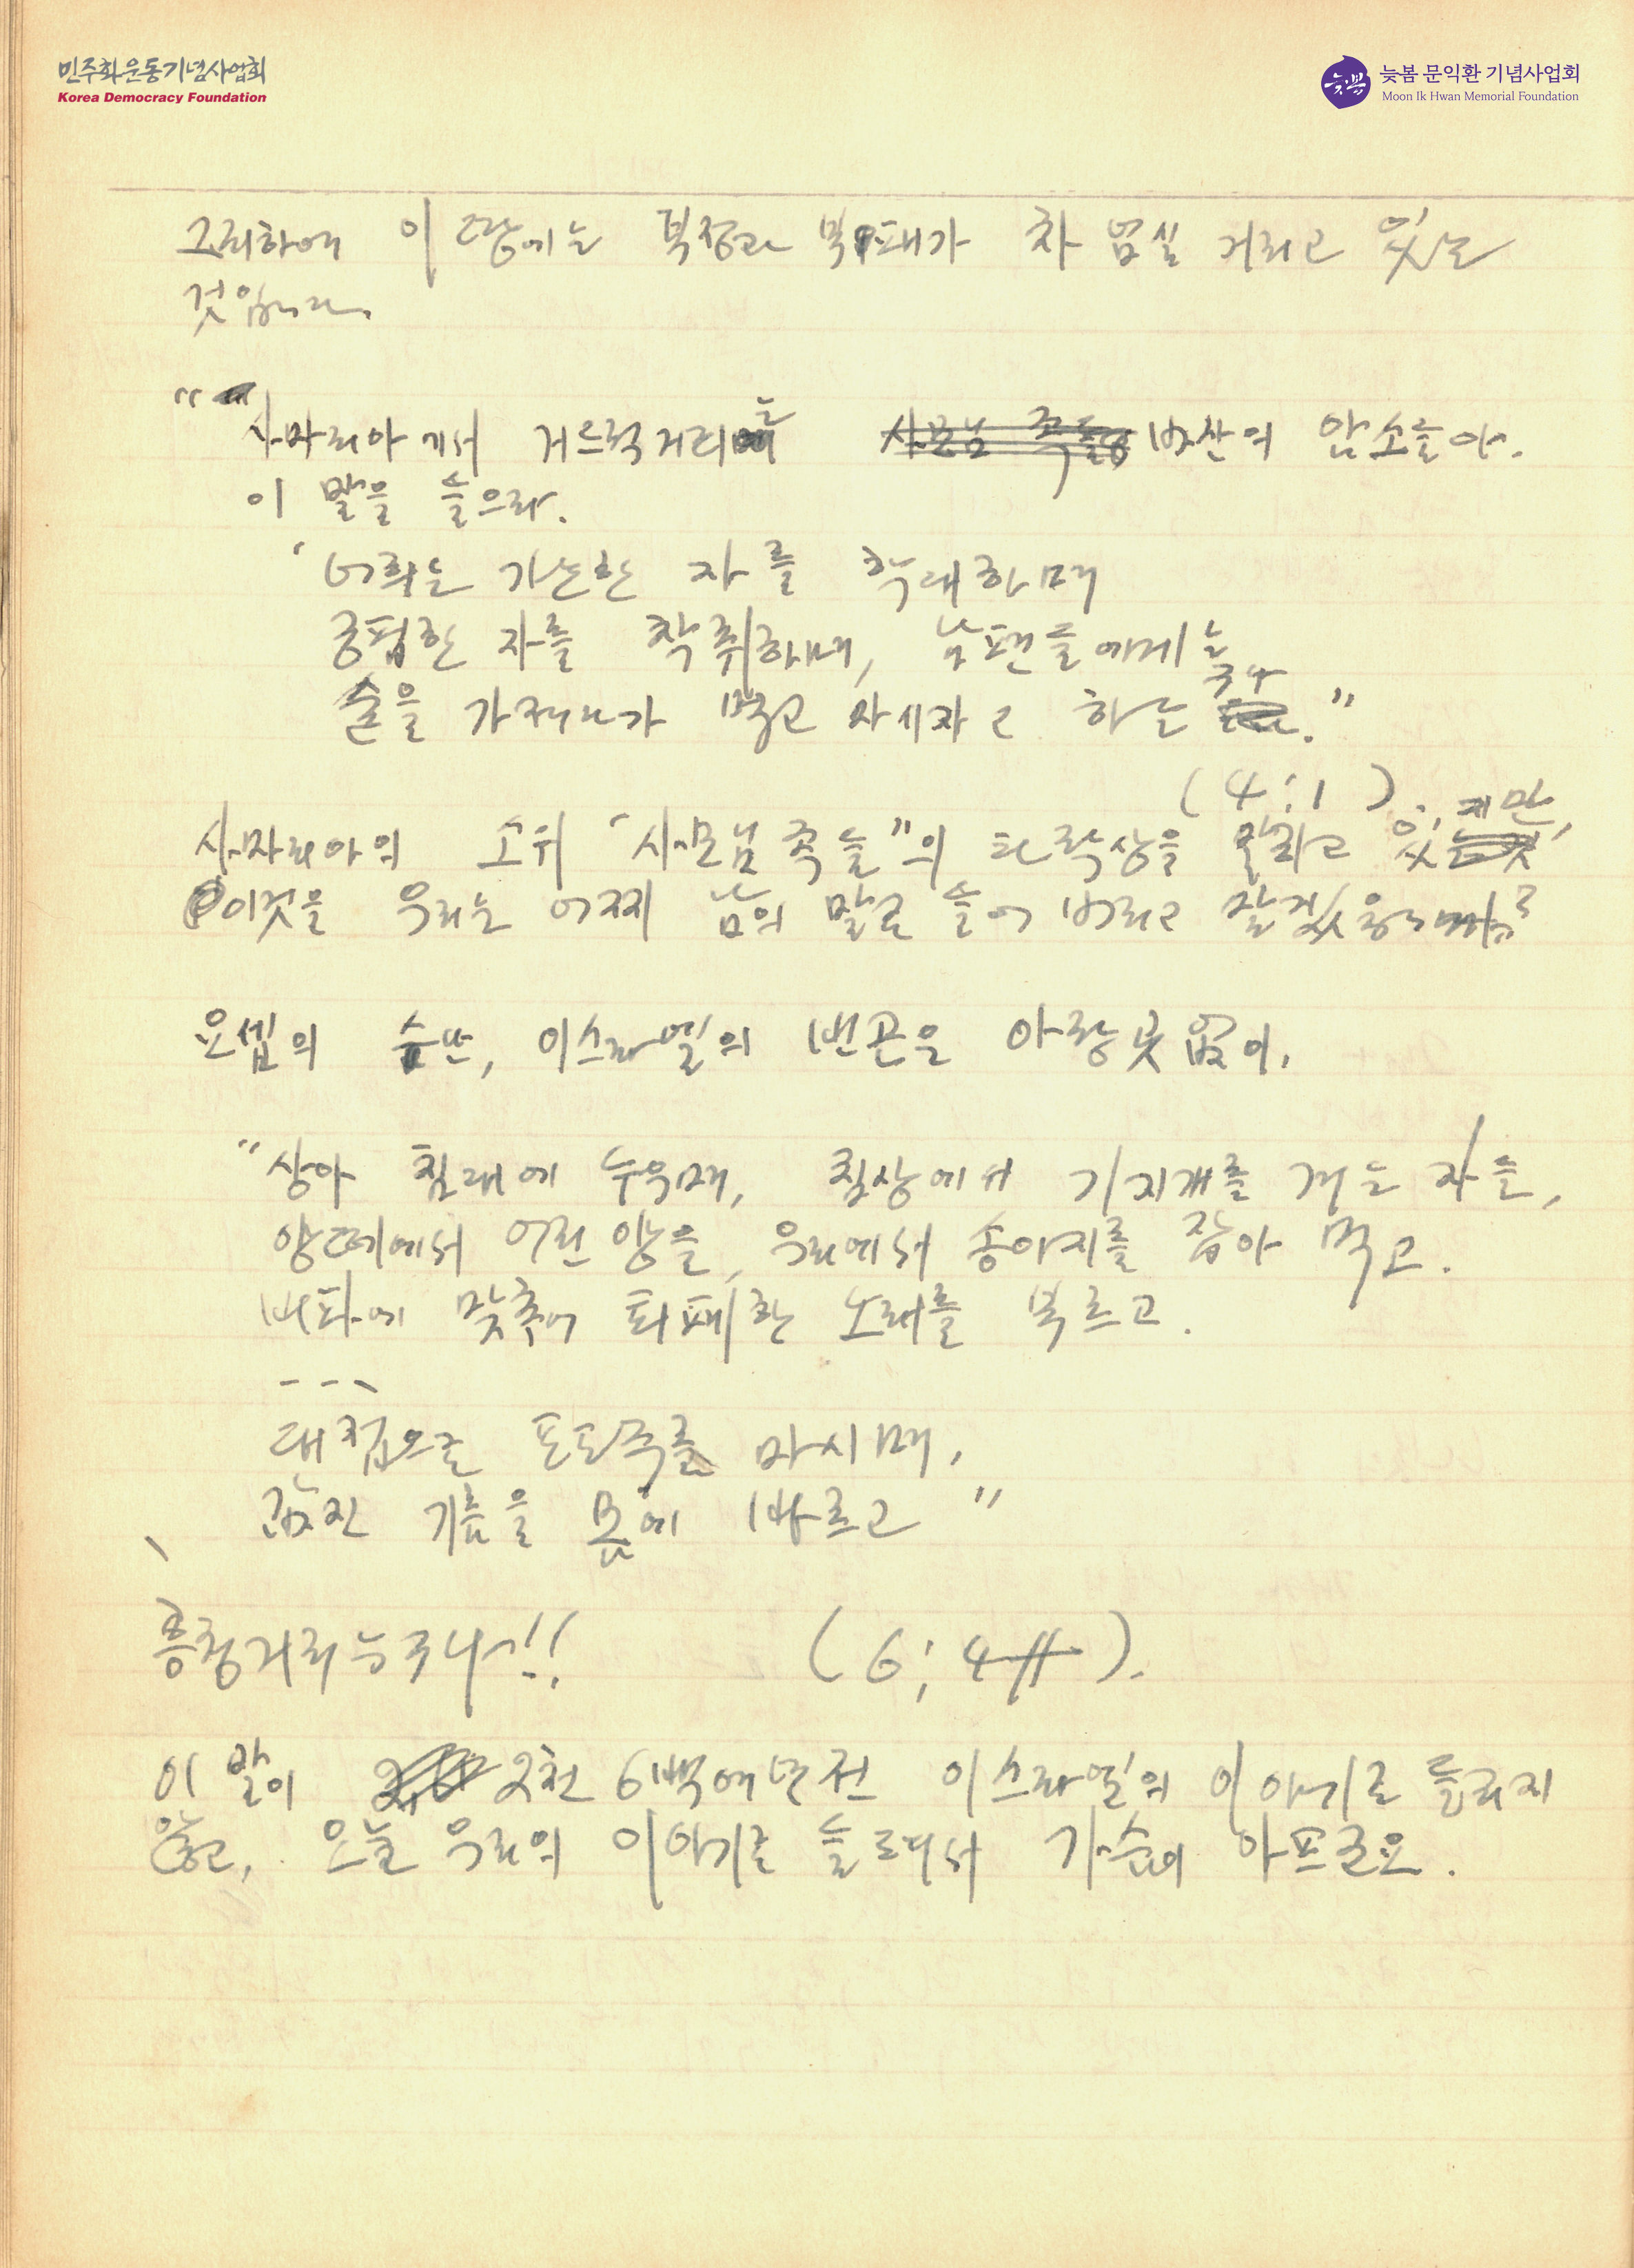 민주화운동기념사업회
Korea Democracy Foundation
늦봄 문익환 기념사업회
Moon Ik Hwan Memorial Foundation
늦봄
그리하여 이 땅에는 부정과 부패가 차 넘실 거리고 있는
것입니다.
"사마리아에서 거드럭거리는 바산의 암소들아.
이 말을 들으라.
'너희는 가난한 자를 학대하며
궁핍한 자를 착취하며, 남편들에게는
술을 가져다가 먹고 마시자고 하는구나."
(4:1).
사마리아의 소위 "사모님족들"의 타락상을 말하고 있지만,
이것을 우리는 어찌 남의 말로 들어 버리고 말겠읍니까?
요셉의 이스라엘의 빈곤은 아랑곳없이,
"상아 침대에 누우며, 침상에서 기지개를 켜는 자들,
양떼에서 어린 양을, 우리에서 송아지를 잡아 먹고.
비파에 맞추어 퇴폐한 노래를 부르고.
---
대접으로 포도주를 마시며,
값진 기름을 몸에 바르고"
흥청거리는구나!!
(6:4ff).
이 말이 2천 6백여년전 이스라엘의 이야기로 들리지
않고, 오늘 우리의 이야기로 들려서 가슴이 아프군요.